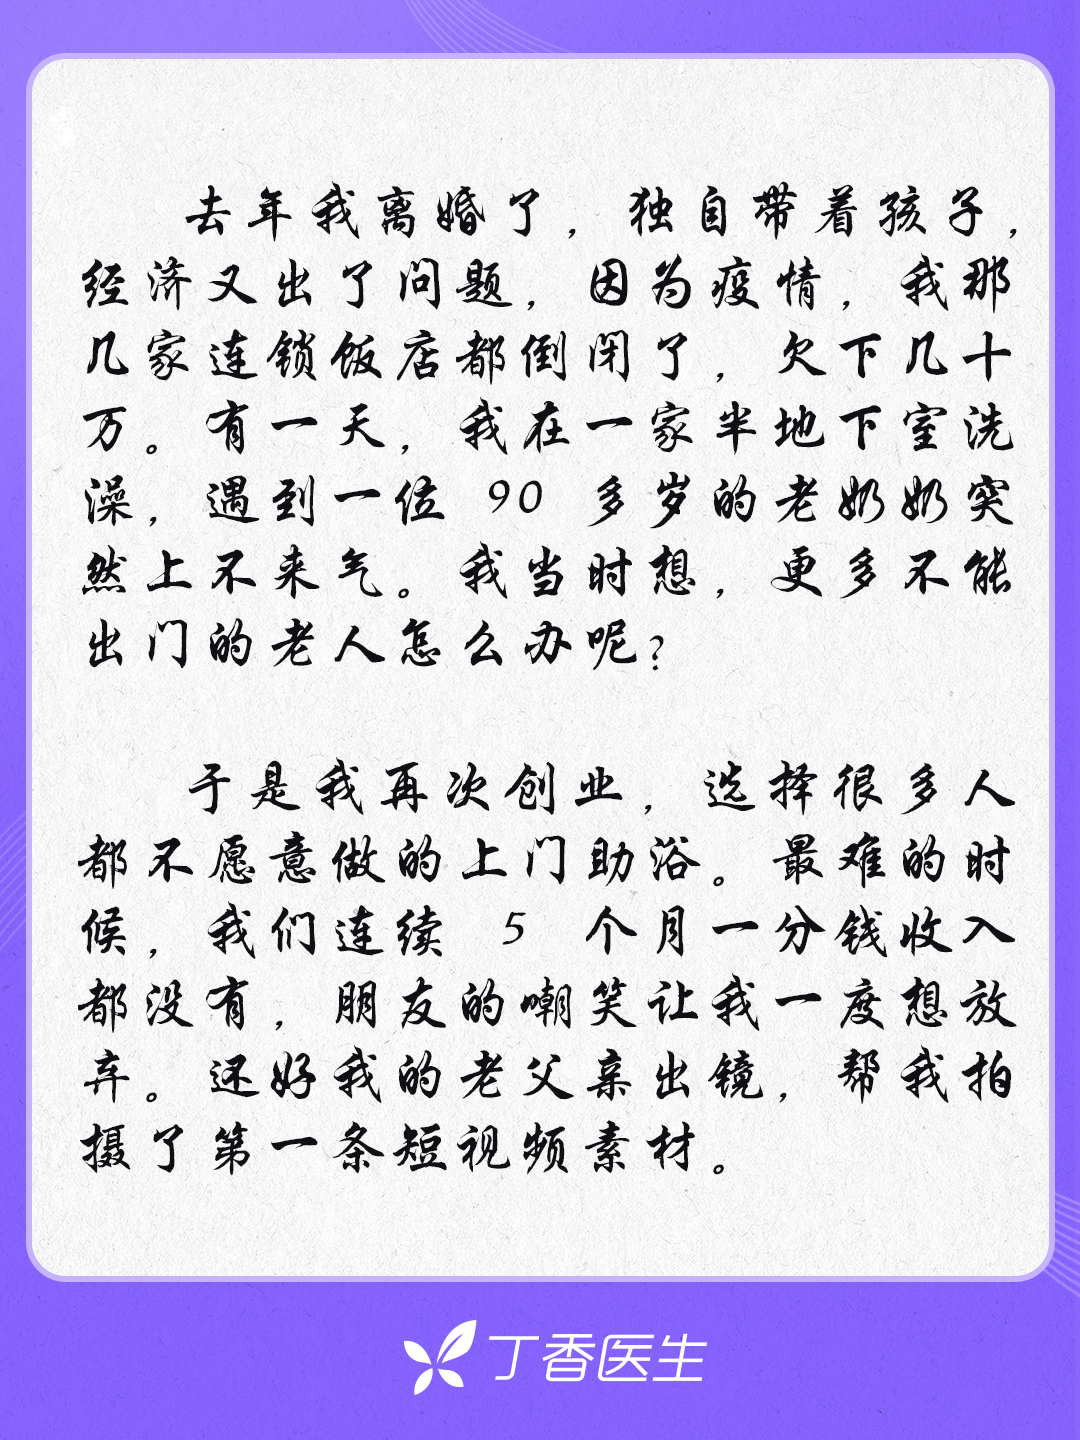 去年我离婚了，独自带着孩子，
经济又出了问题，因为疫情，我那
几家连锁饭店都倒闭了，欠下几十
万。有一天，我在一家半地下室洗
澡，遇到一位 90 多岁的老奶奶突
然上不来气。我当时想，更多不能
出门的老人怎么办呢？
于是我再次创业，选择很多人
都不愿意做的上门助浴。最难的时
候，我们连续 5 个月一分钱收入
都没有，朋友的嘲笑让我一度想放
弃。还好我的老父亲出镜，帮我拍
摄了第一条短视频素材。
丁香医生